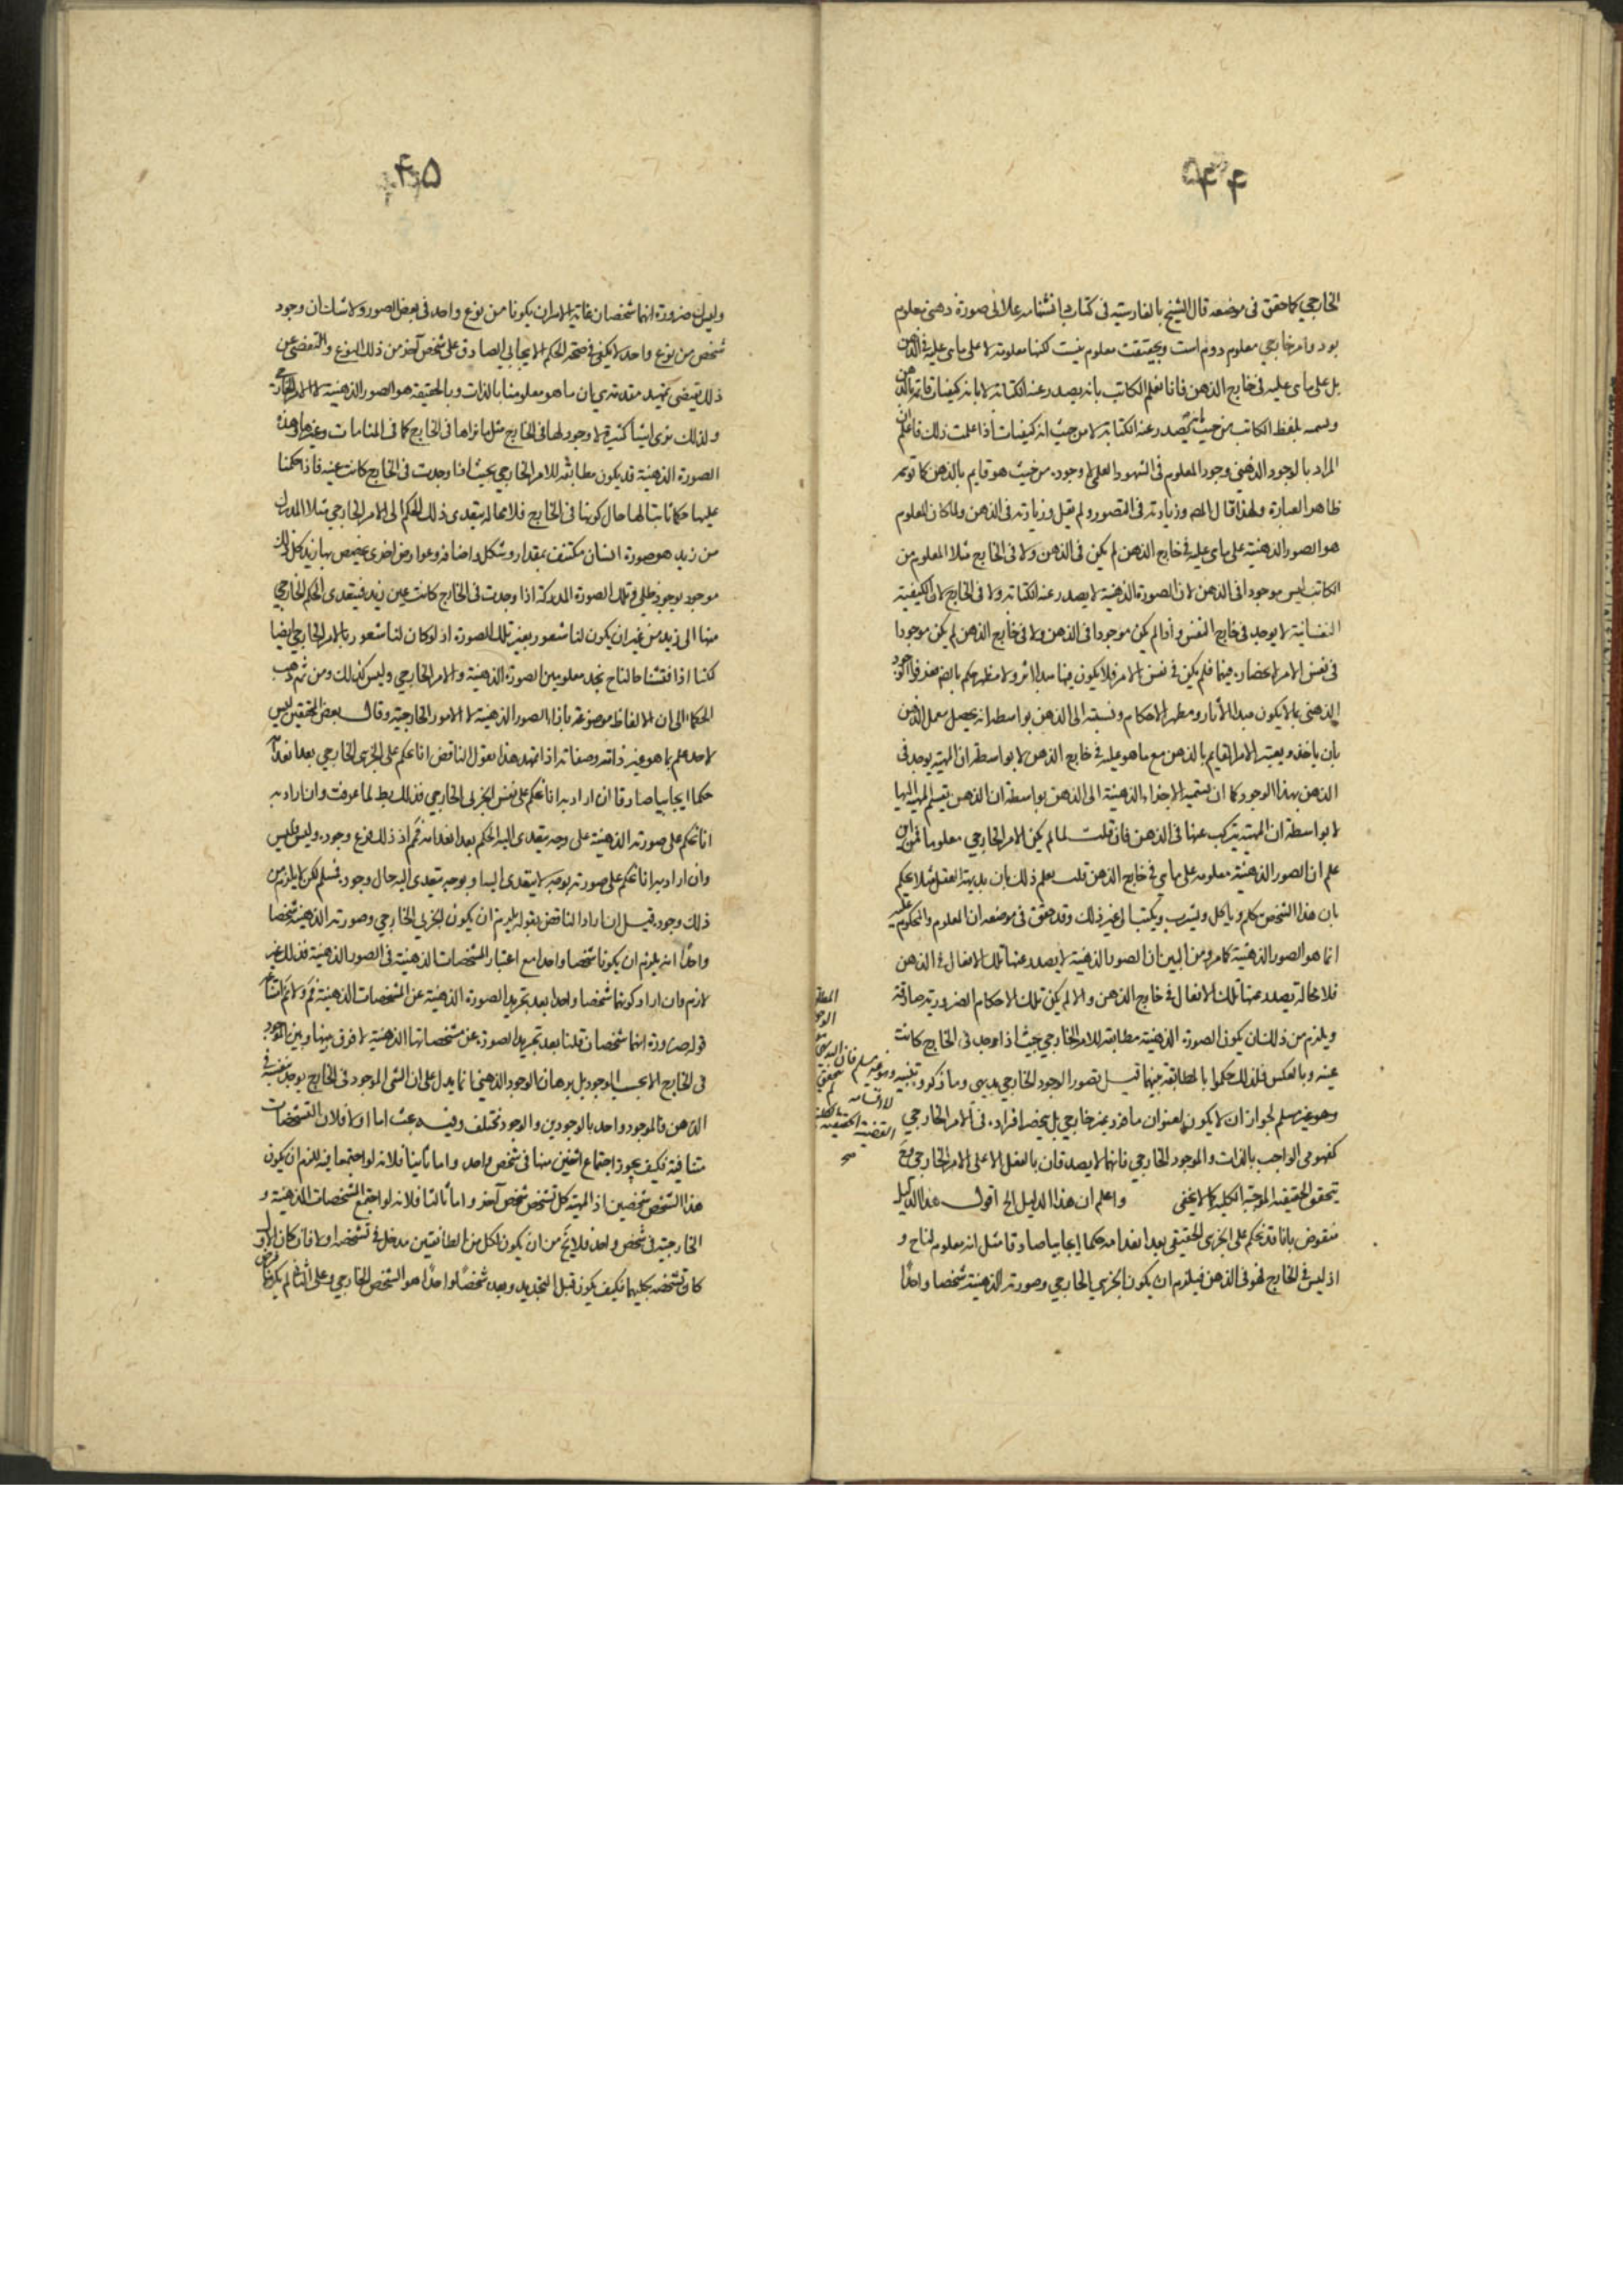 ۴۴
الخارجي كما حقق فى موضعه قال الشيخ بالفارسية فى كتاب دانشنامه علائى صورة ذهنى معلوم
بود وامر خارجي معلوم دوم است وبحقيقت معلوم نيست لكنها معلومة لا على ما هى عليه فى الذهن
بل على ما هى عليه فى خارج الذهن فانا نعلم الكاتب بانه يصدر عنه الكتابة لا بانه كيفيات قائمة بالذهن
ونسمه بلفظ الكاتب من حيث انه يصدر عنه الكتابة لا من حيث انه كيفيات اذا علمت ذلك فاعلم ان
المراد بالوجود الذهنى وجود المعلوم فى الشهود العلمى لا وجوده من حيث هو قايم بالذهن كما توهم
ظاهر العبارة ولهذا قال المص وزيادته فى التصور ولم يقل وزيادته فى الذهن ولما كان المعلوم
هو الصور الذهنية على ما هى عليه فى خارج الذهن لم يكن فى الذهن ولا فى الخارج مثلا المعلوم من
الكاتب ليس موجودا فى الذهن لان الصورة الذهنية لا يصدر عنه الكتابة ولا فى الخارج لان الكيفية
النفسانية لا يوجد فى خارج النفس واذا لم يكن موجودا فى الذهن ولا فى خارج الذهن لم يكن موجودا
فى نفس الامر لانحصاره فيهما فلم يكن فى نفس الامر فلا يكون فيها مبدا اثر ولا مظهر حكم بالضم فعرفوا الوجود
الذهنى بما لا يكون مبدا للآثار ومظهر الاحكام ونسبته الى الذهن بواسطة انه يحصل بعمل الذهن
بان ياخذ ويعتبر الامر القايم بالذهن مع ما هو عليه فى خارج الذهن لا بواسطة ان المهية يوجد فى
الذهن بهذا الوجود كما ان تسمية الاجزاء الذهنية الى الذهن بواسطة ان الذهن يقسم المهية اليها
لا بواسطة ان المهية يتركب عنها فى الذهن فان قلت لما لم يكن الامر الخارجي معلوما فمن اين
علم ان الصور الذهنية معلومة على ما هى فى خارج الذهن قلت يعلم ذلك بان بديهة العقل مثلا يحكم
بان هذا الشخص يتكلم وياكل ويشرب ويكتب الى غير ذلك وقد حقق فى موضعه ان المعلوم والمحكوم عليه
انما هو الصور الذهنية كما مر ومن البين ان الصور الذهنية لا يصدر عنها تلك الافعال فى الذهن
فلا محالة يصدر عنها تلك الافعال فى خارج الذهن والا لم يكن تلك الاحكام الضرورية صادقة
ويلزم من ذلك ان يكون الصورة الذهنية مطابقة للامر الخارجي بحيث اذا وجد فى الخارج كانت
عينه وبالعكس فلذلك حكموا بالمطابقة بينهما قيل تصور الوجود الخارجي بديهى وما ذكروه تنبيه
وهو غير مسلم لجواز ان لا يكون لعنوان ما فرد غير خارجي بل ينحصر افراده فى الامر الخارجي
كمفهومى الواجب بالذات والموجود الخارجي فانهما لا يصدقان بالفعل الا على الامر الخارجي فمع
يتحقق الحقيقية الموجبة الكلية كما لا يخفى واعلم ان هذا الدليل الخ اقول هذا الدليل
منقوض بانا قد نحكم على الجزئى الحقيقى بعد انعدامه حكما ايجابيا صادقا مثل انه معلوم لناح و
اذ ليس فى الخارج فهو فى الذهن فيلزم ان يكون الجزئي الخارجي وصورته الذهنية شخصا واحدا
۴۵
وليس ضرورة انهما شخصان غاية الامر ان يكونا من نوع واحد فى بعض الصور ولا شك ان وجود
شخص من نوع واحد لا يكفى فى صحة الحكم الايجابي الصادق على شخص آخر من ذلك النوع والتفصى عن
ذلك يقتضى تمهيد مقدمة هي ان ما هو معلومنا بالذات وبالحقيقة هو الصور الذهنية لا الامر الخارجي
ولذلك نرى اشياء كثيرة لا وجود لها فى الخارج مثل ما نراها فى الخارج كما فى المنامات وغيرها وهذه
الصورة الذهنية قد يكون مطابقة للامر الخارجي بحيث اذا وجدت فى الخارج كانت عينه فاذا حكمنا
عليها حكما ثابتا لها حال كونها فى الخارج فلا محالة يتعدى ذلك الحكم الى الامر الخارجي مثلا المدرك
من زيد هو صورة انسان مكتنف بمقدار وشكل واضافة وعوارض اخرى يختص بها زيد كل ذلك
موجود بوجود ظلى وتلك الصورة المدركة اذا وجدت فى الخارج كانت عين زيد فيتعدى الحكم الخارجي
منها الى زيد من غير ان يكون لنا شعور بغير تلك الصورة اذ لو كان لنا شعور بالامر الخارجي ايضا
لكنا اذا فتشنا حالناح نجد معلومين الصورة الذهنية والامر الخارجي وليس كذلك ومن ثم ذهب
الحكماء الى ان الالفاظ موضوعة بازاء الصور الذهنية لا الامور الخارجية وقال بعض المحققين ليس
لاحد علم بما هو غير ذاته وصفاته اذا تمهد هذا نقول للناقض انا نحكم على الجزئى الخارجي بعد انعدامه
حكما ايجابيا صادقا ان اراد به انا نحكم على نفس الجزئى الخارجي فذلك بط لما عرفت وان اراد به
انا نحكم على صورته الذهنية على وجه يتعدى اليه الحكم بعد انعدامه فمم اذ ذلك فرع وجوده وليس فليس
وان اراد به انا نحكم على صورته بوجه لا يتعدى اليه او بوجه يتعدى اليه حال وجوده فمسلم لكن لا يلزم من
ذلك وجوده قيل ان اراد الناقض بقوله يلزم ان يكون الجزئى الخارجي وصورته الذهنية شخصا
واحدا انه يلزم ان يكونا شخصا واحدا مع اعتبار المشخصات الذهنية فى الصورة الذهنية فذلك غير
لازم وان اراد كونهما شخصا واحدا بعد تجريد الصورة الذهنية عن المشخصات الذهنية فمم ولا نم امتناعه
قوله ضرورة انهما شخصان قلنا بعد تجريد الصورة عن مشخصاتها الذهنية لا فرق بينها وبين الموجود
فى الخارج الا بحسب الوجود بل برهان الوجود الذهنى انما يدل على ان الشئ الموجود فى الخارج يوجد بنفسه فى
الذهن فالموجود واحد بالوجودين والوجود مختلف وفيه بحث اما اولا فلان التشخصات
متنافية فكيف يجوز اجتماع اثنين منها فى شخص واحد واما ثانيا فلانه لو اجتمعا فيه للزم ان يكون
هذا الشخص شخصين اذ المهية كل تشخص شخص آخر واما ثالثا فلانه لو اجتمع المشخصات الذهنية و
الخارجية فى شخص واحد فلا يخ من ان يكون لكل من الطائفتين مدخل فى تشخصه اولا فان كان الاول
كان تشخصه بكليهما فكيف يكون قبل التجريد وبعده شخصا واحدا هو الشخص الخارجي وعلى الثانى لم يكن